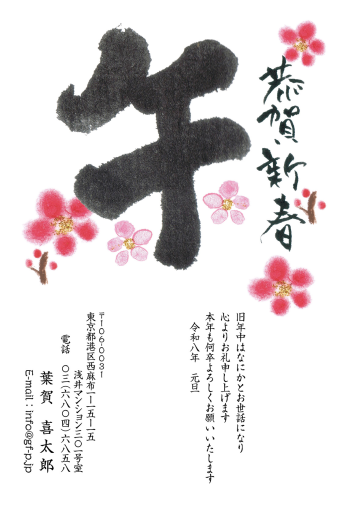 恭賀新春
午
旧年中はなにかとお世話になり
心よりお礼申し上げます
本年も何卒よろしくお願いいたします
令和八年　元旦
〒106-0031
東京都港区西麻布一ー一五ー一五
浅井マンション三〇一号室
電話　〇三(六八〇四)六八五八
葉賀　喜太郎
E-mail：info@gf-p.jp